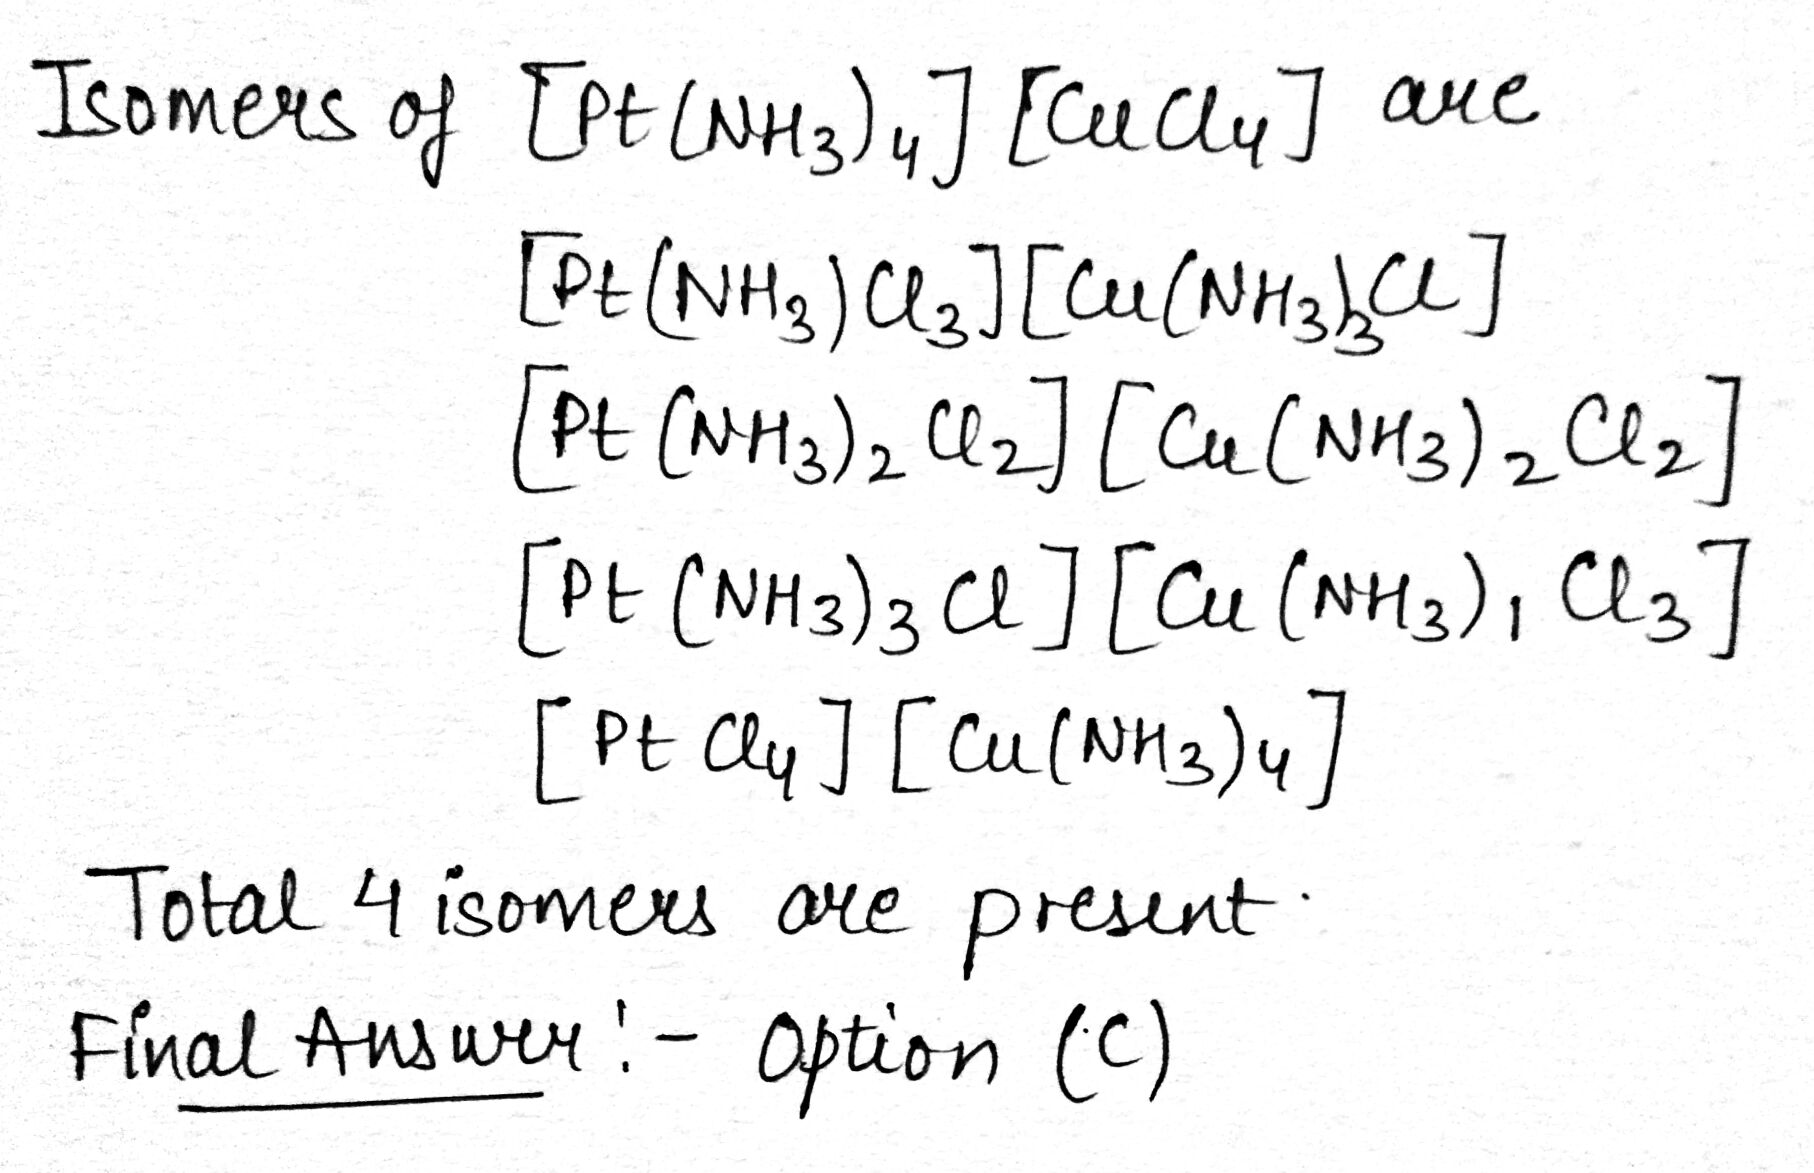 Isomers of [Pt(NH3)4] [CuCl4] are
[Pt(NH3)Cl3][Cu(NH3)3Cl]
[Pt(NH3)2Cl2] [Cu(NH3)2Cl2]
[Pt(NH3)3Cl] [Cu(NH3)1Cl3]
[PtCl4] [Cu(NH3)4]
Total 4 isomers are present.
Final Answer:- Option (C)